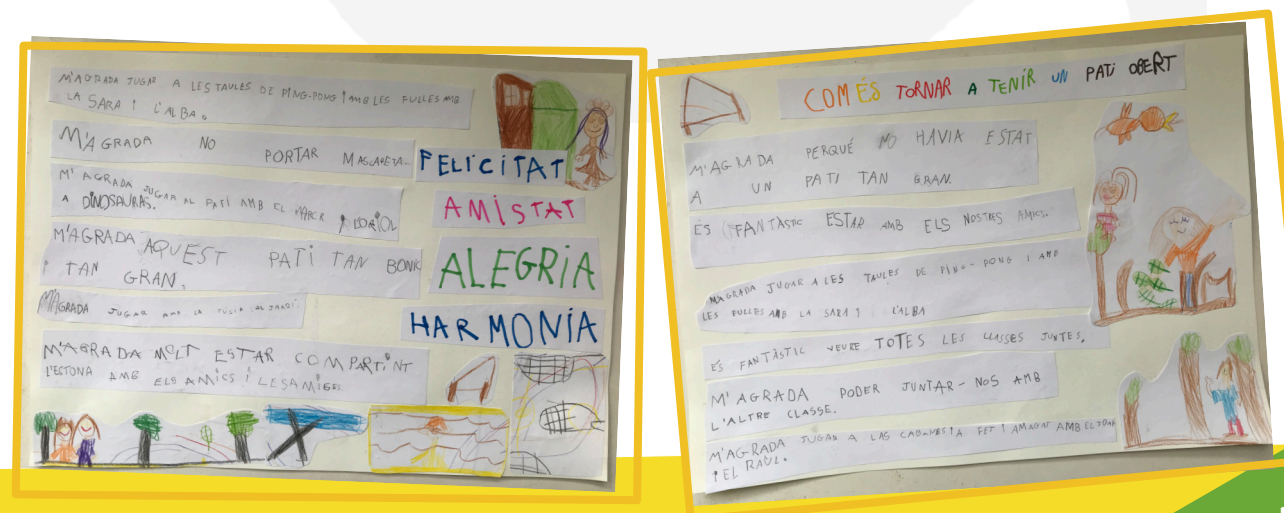 M'AGRADA JUGAR A LES TAULES DE PING-PONG I AMB LES FULLES AMB
LA SARA I L'ALBA.
M'AGRADA NO PORTAR MASCARETA.
M'AGRADA JUGAR AL PATI AMB EL MARCR I L'ORIOL
A DINOSAURAS.
M'AGRADA AQUEST PATI TAN BONIC
I TAN GRAN.
M'AGRADA JUGAR AMB LA JÚLIA AL JARDÍ.
M'AGRADA MOLT ESTAR COMPARTINT
L'ESTONA AMB ELS AMICS I LES AMIGES.
FELICITAT
AMISTAT
ALEGRIA
HARMONIA
COM ÉS TORNAR A TENIR UN PATI OBERT
M'AGRADA PERQUÈ NO HAVIA ESTAT
A UN PATI TAN GRAN.
ÉS FANTÀSTIC ESTAR AMB ELS NOSTRES AMICS.
M'AGRADA JUGAR A LES TAULES DE PING-PONG I AMB
LES FULLES AMB LA SARA I L'ALBA
ÉS FANTÀSTIC VEURE TOTES LES CLASSES JUNTES.
M'AGRADA PODER JUNTAR-NOS AMB
L'ALTRE CLASSE.
M'AGRADA JUGAR A LAS CABANES I A FET I AMAGAT AMB EL
I EL RAÜL.